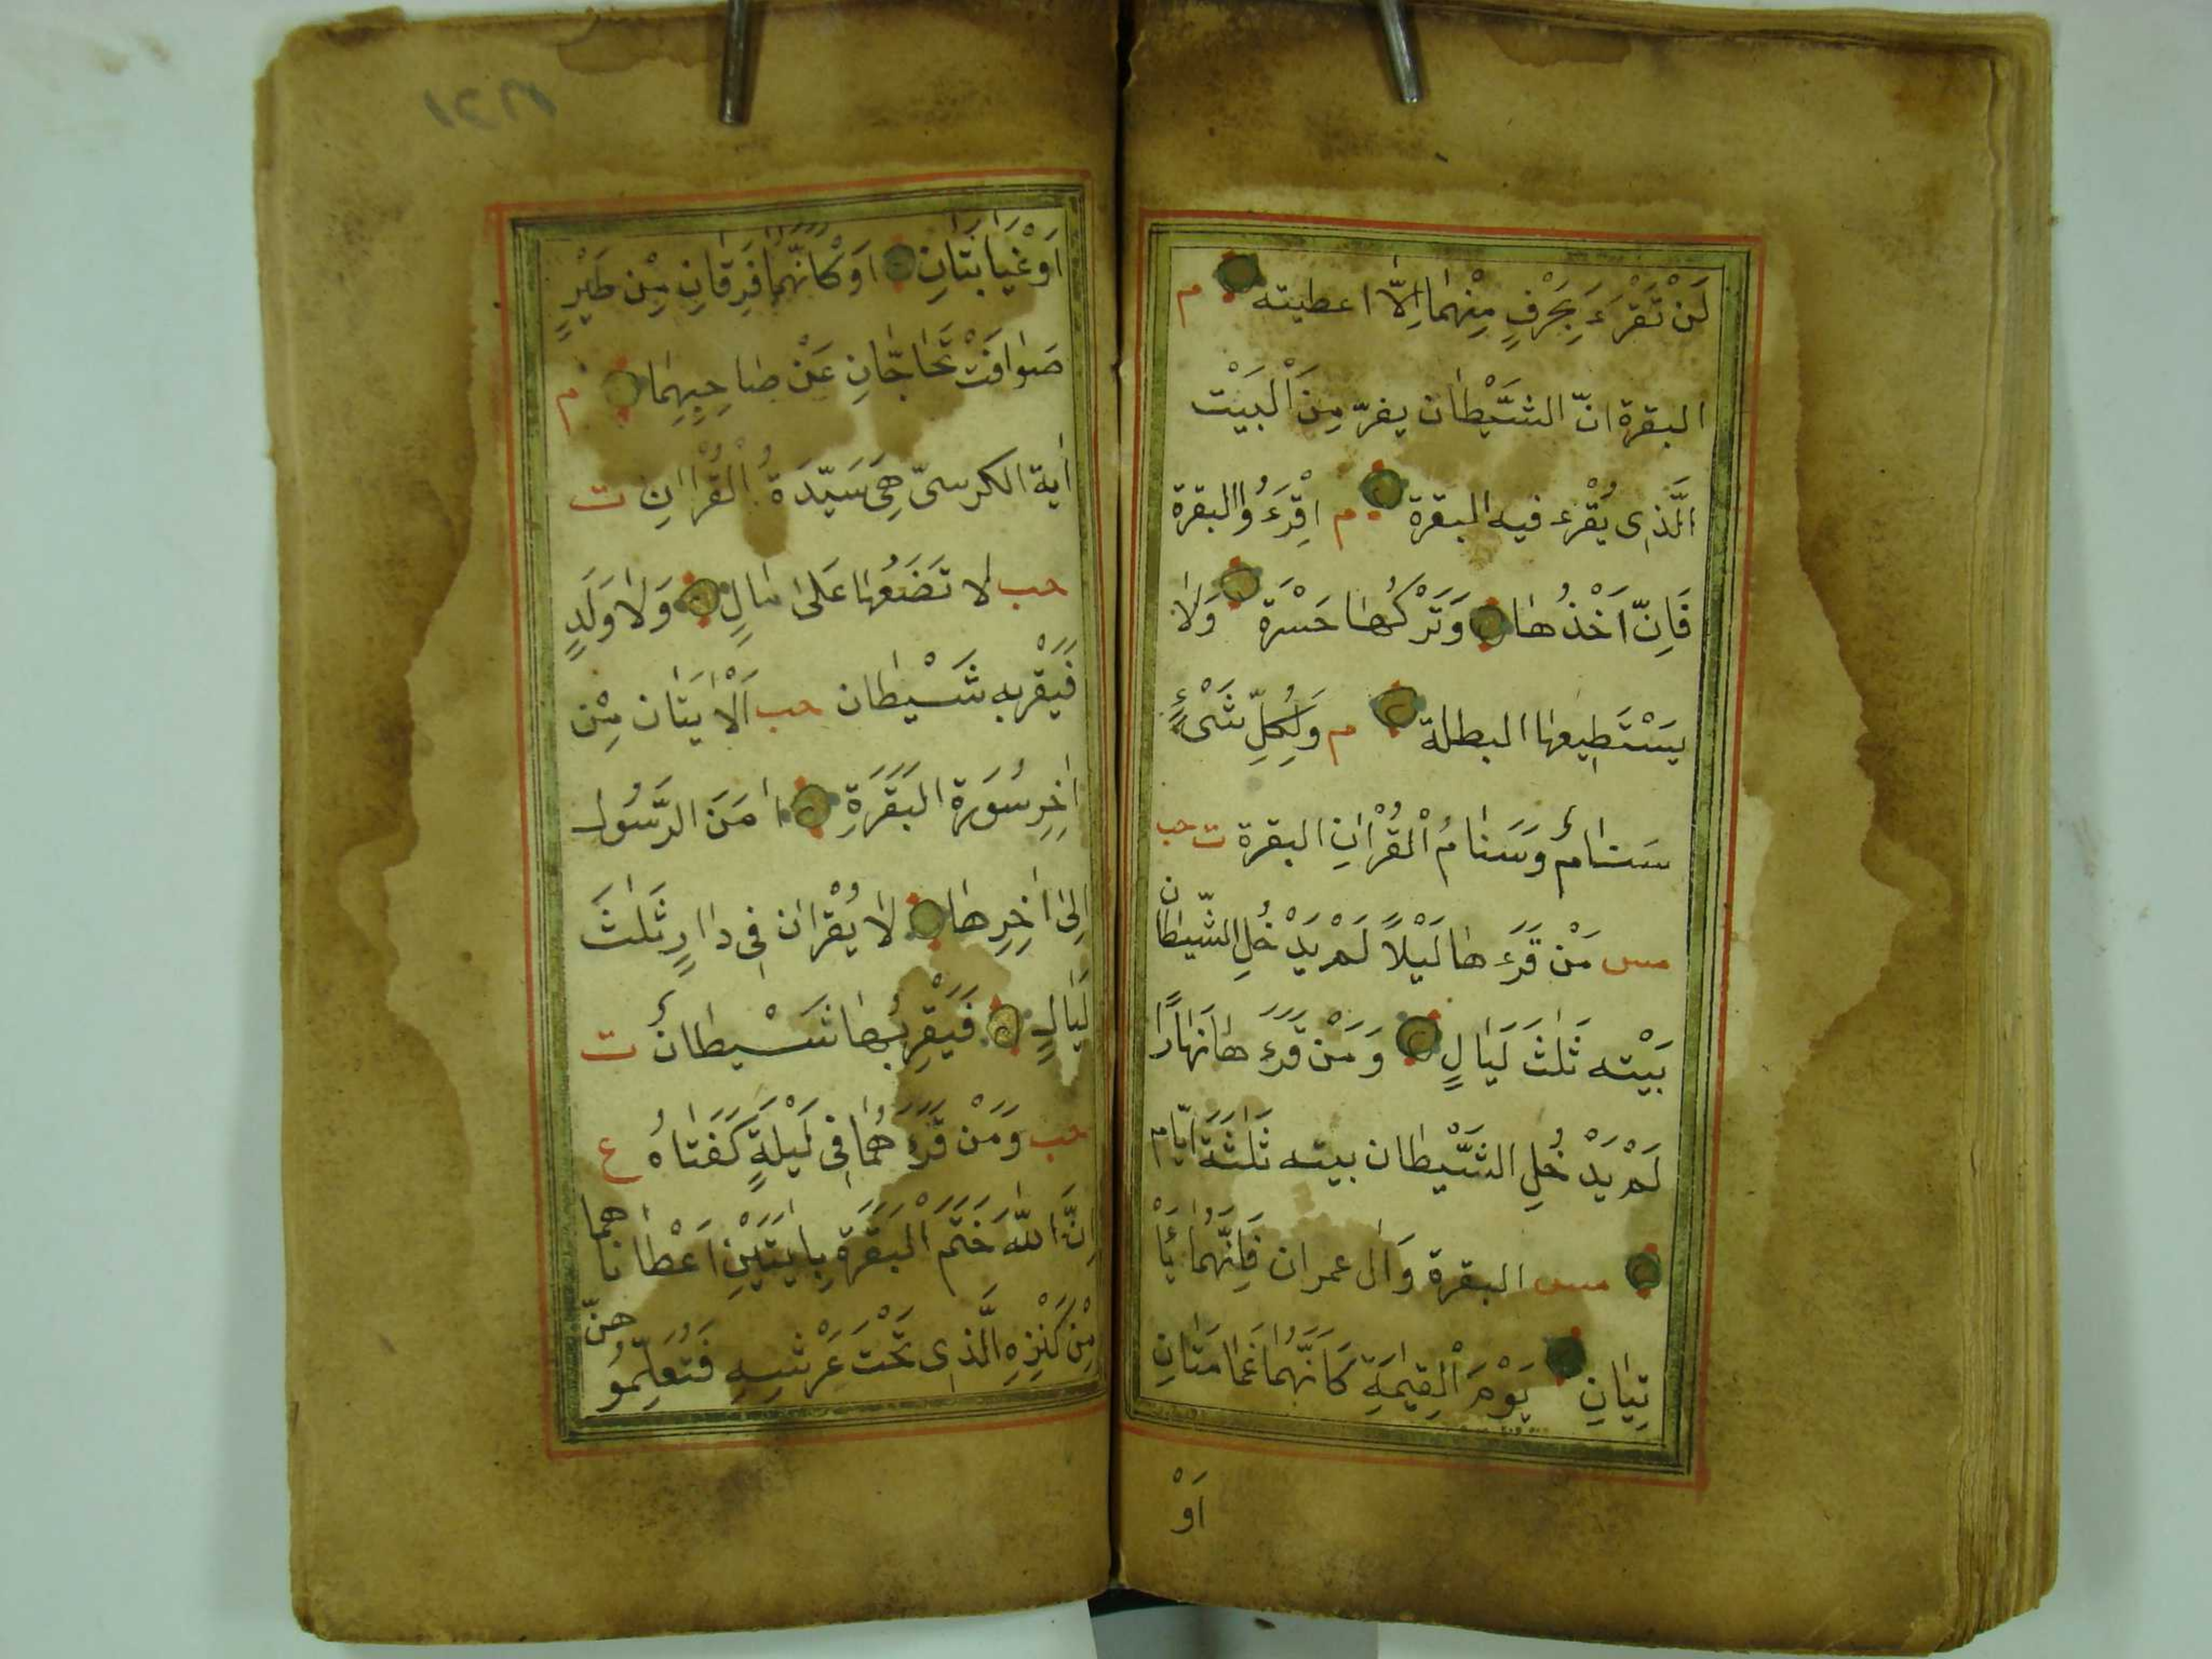 لَنْ تَقْرَءَ بِحَرْفٍ مِنْهُمَا اِلَّا اعطيته م
البقرة انّ الشَّيْطان يفرّ مِنَ الْبَيْت
الَّذِى يُقْرء فيه البقرة م اِقْرَءُوا البقرة
فَاِنّ اَخْذُها وَتَرْكُها حَسْرَة وَلا
يَسْتَطِيعها البطلة م وَلِكُلِّ شَىْءٍ
سَنامٌ وَسَنامُ الْقُرْانِ البقرة ت حب
مس مَنْ قَرَءَ ها لَيْلاً لَمْ يَدْخُلِ الشّيطان
بَيْته ثَلثَ لَيَالٍ وَمَنْ قَرَءَ ها نَهارًا
لَمْ يَدْخُلِ الشَّيْطان بيته ثَلثَة ايّام
مس البقرة وَال عمران فَاِنَّهُمَا يَأْ
تِيانِ يَوْمَ الْقِيمَةِ كَاَنَّهُمَا غَمَامَتَانِ
اَوْ
١٦٢١
اَوْ غَيَابَتَانِ اَوْ كَاَنَّهُمَا فِرقَانِ مِنْ طَيْرٍ
صَوافَّ تُحَاجَّانِ عَنْ صاحِبِهِمَا م
اية الكرسىّ هِىَ سَيّدَةُ الْقُرْانِ ت
حب لا تَضَعُها عَلى مالٍ وَلا وَلَدٍ
فَيَقْربه شَيْطان حب اَلْايَتان مِنْ
اخِرِ سُورَة الْبَقَرَةِ امَنَ الرَّسُول
اِلى اخِرِها لا يُقْرَان فِى دارٍ ثَلثَ
لَيَالٍ فَيَقْرِبُها شَيْطانٌ ت
حب وَمَنْ قَرَءَ هُمَا فِى لَيْلَةٍ كَفَتاهُ ع
اِنَّ اللّهَ خَتَمَ الْبَقَرَة بِايَتَيْنِ اَعْطانا هما
مِنْ كَنْزِهِ الَّذِى تَحْتَ عَرْشِهِ فَتَعَلَّمُو هنّ